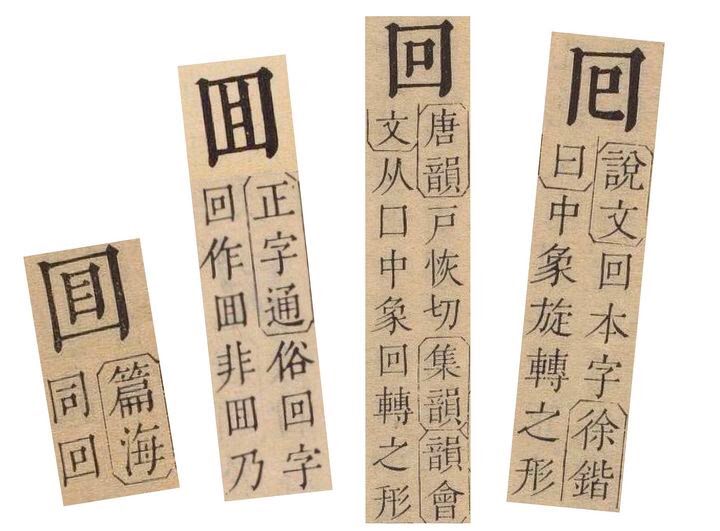 囘
說文回本字徐鍇
曰中象旋轉之形
回
唐韻戸恢切集韻韻會
文从囗中象回轉之形
囬
正字通俗回字
回作囬非囬乃
篇海
同回